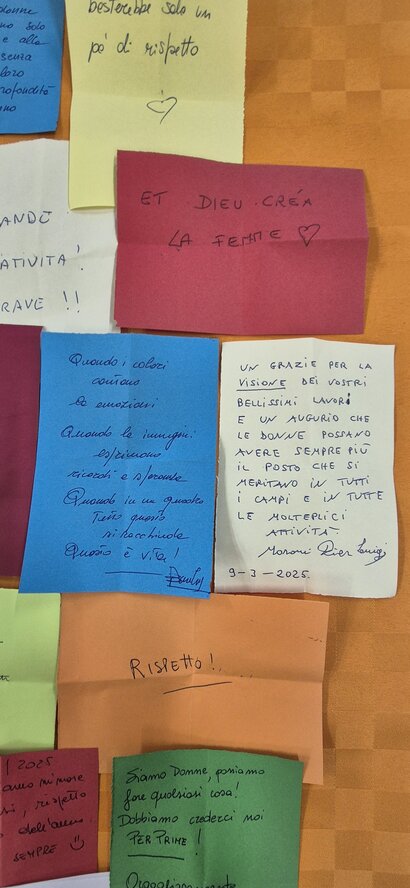 donne
no solo
e alla
senza
loro
rofondità
basterebbe solo un
pó di rispetto
ET DIEU CRÉA
LA FEMME
ATIVITA'!
RAVE !!
Quando i colori
cantano
le emozioni
Quando le immagini
esprimono
ricordi e speranze
Quando in un quadro
Tutto questo
si racchiude
Questo è vita!
UN GRAZIE PER LA
VISIONE DEI VOSTRI
BELLISSIMI LAVORI
E UN AUGURIO CHE
LE DONNE POSSANO
AVERE SEMPRE PIÙ
IL POSTO CHE SI
MERITANO IN TUTTI
I CAMPI E IN TUTTE
LE MOLTEPLICI
ATTIVITÀ.
Moroni Pier Luigi
9-3-2025.
RISPETTO!.....
2025
si, rispetto
dell'anno.
SEMPRE
Siamo Donne, possiamo
fare qualsiasi cosa!
Dobbiamo crederci noi
PER PRIME !
Orgogliosamente